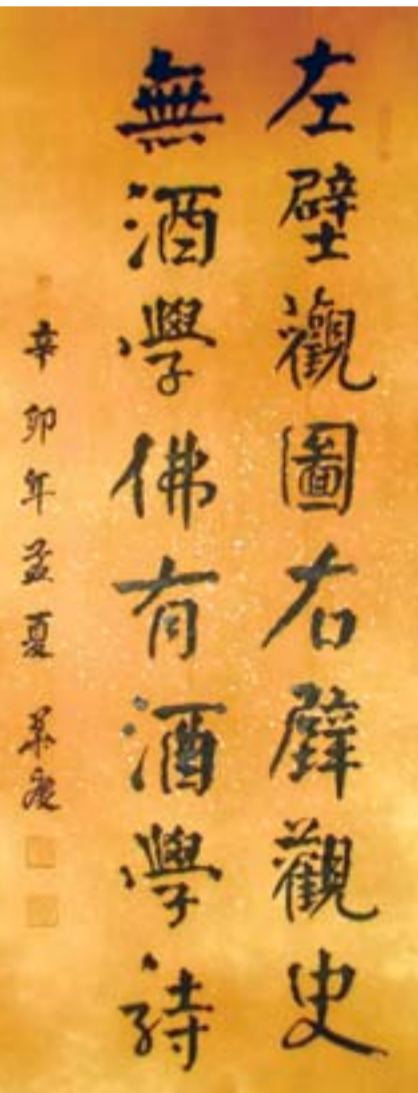 左壁觀圖右壁觀史
無酒學佛有酒學詩
辛卯年孟夏